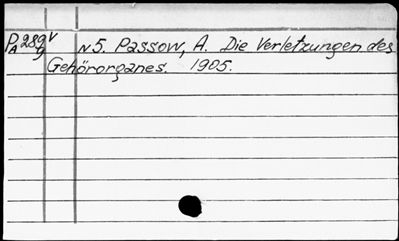 D 289 V N 5. Passow, A. Die Verletzungen des
A
Gehörorganes. 1905.